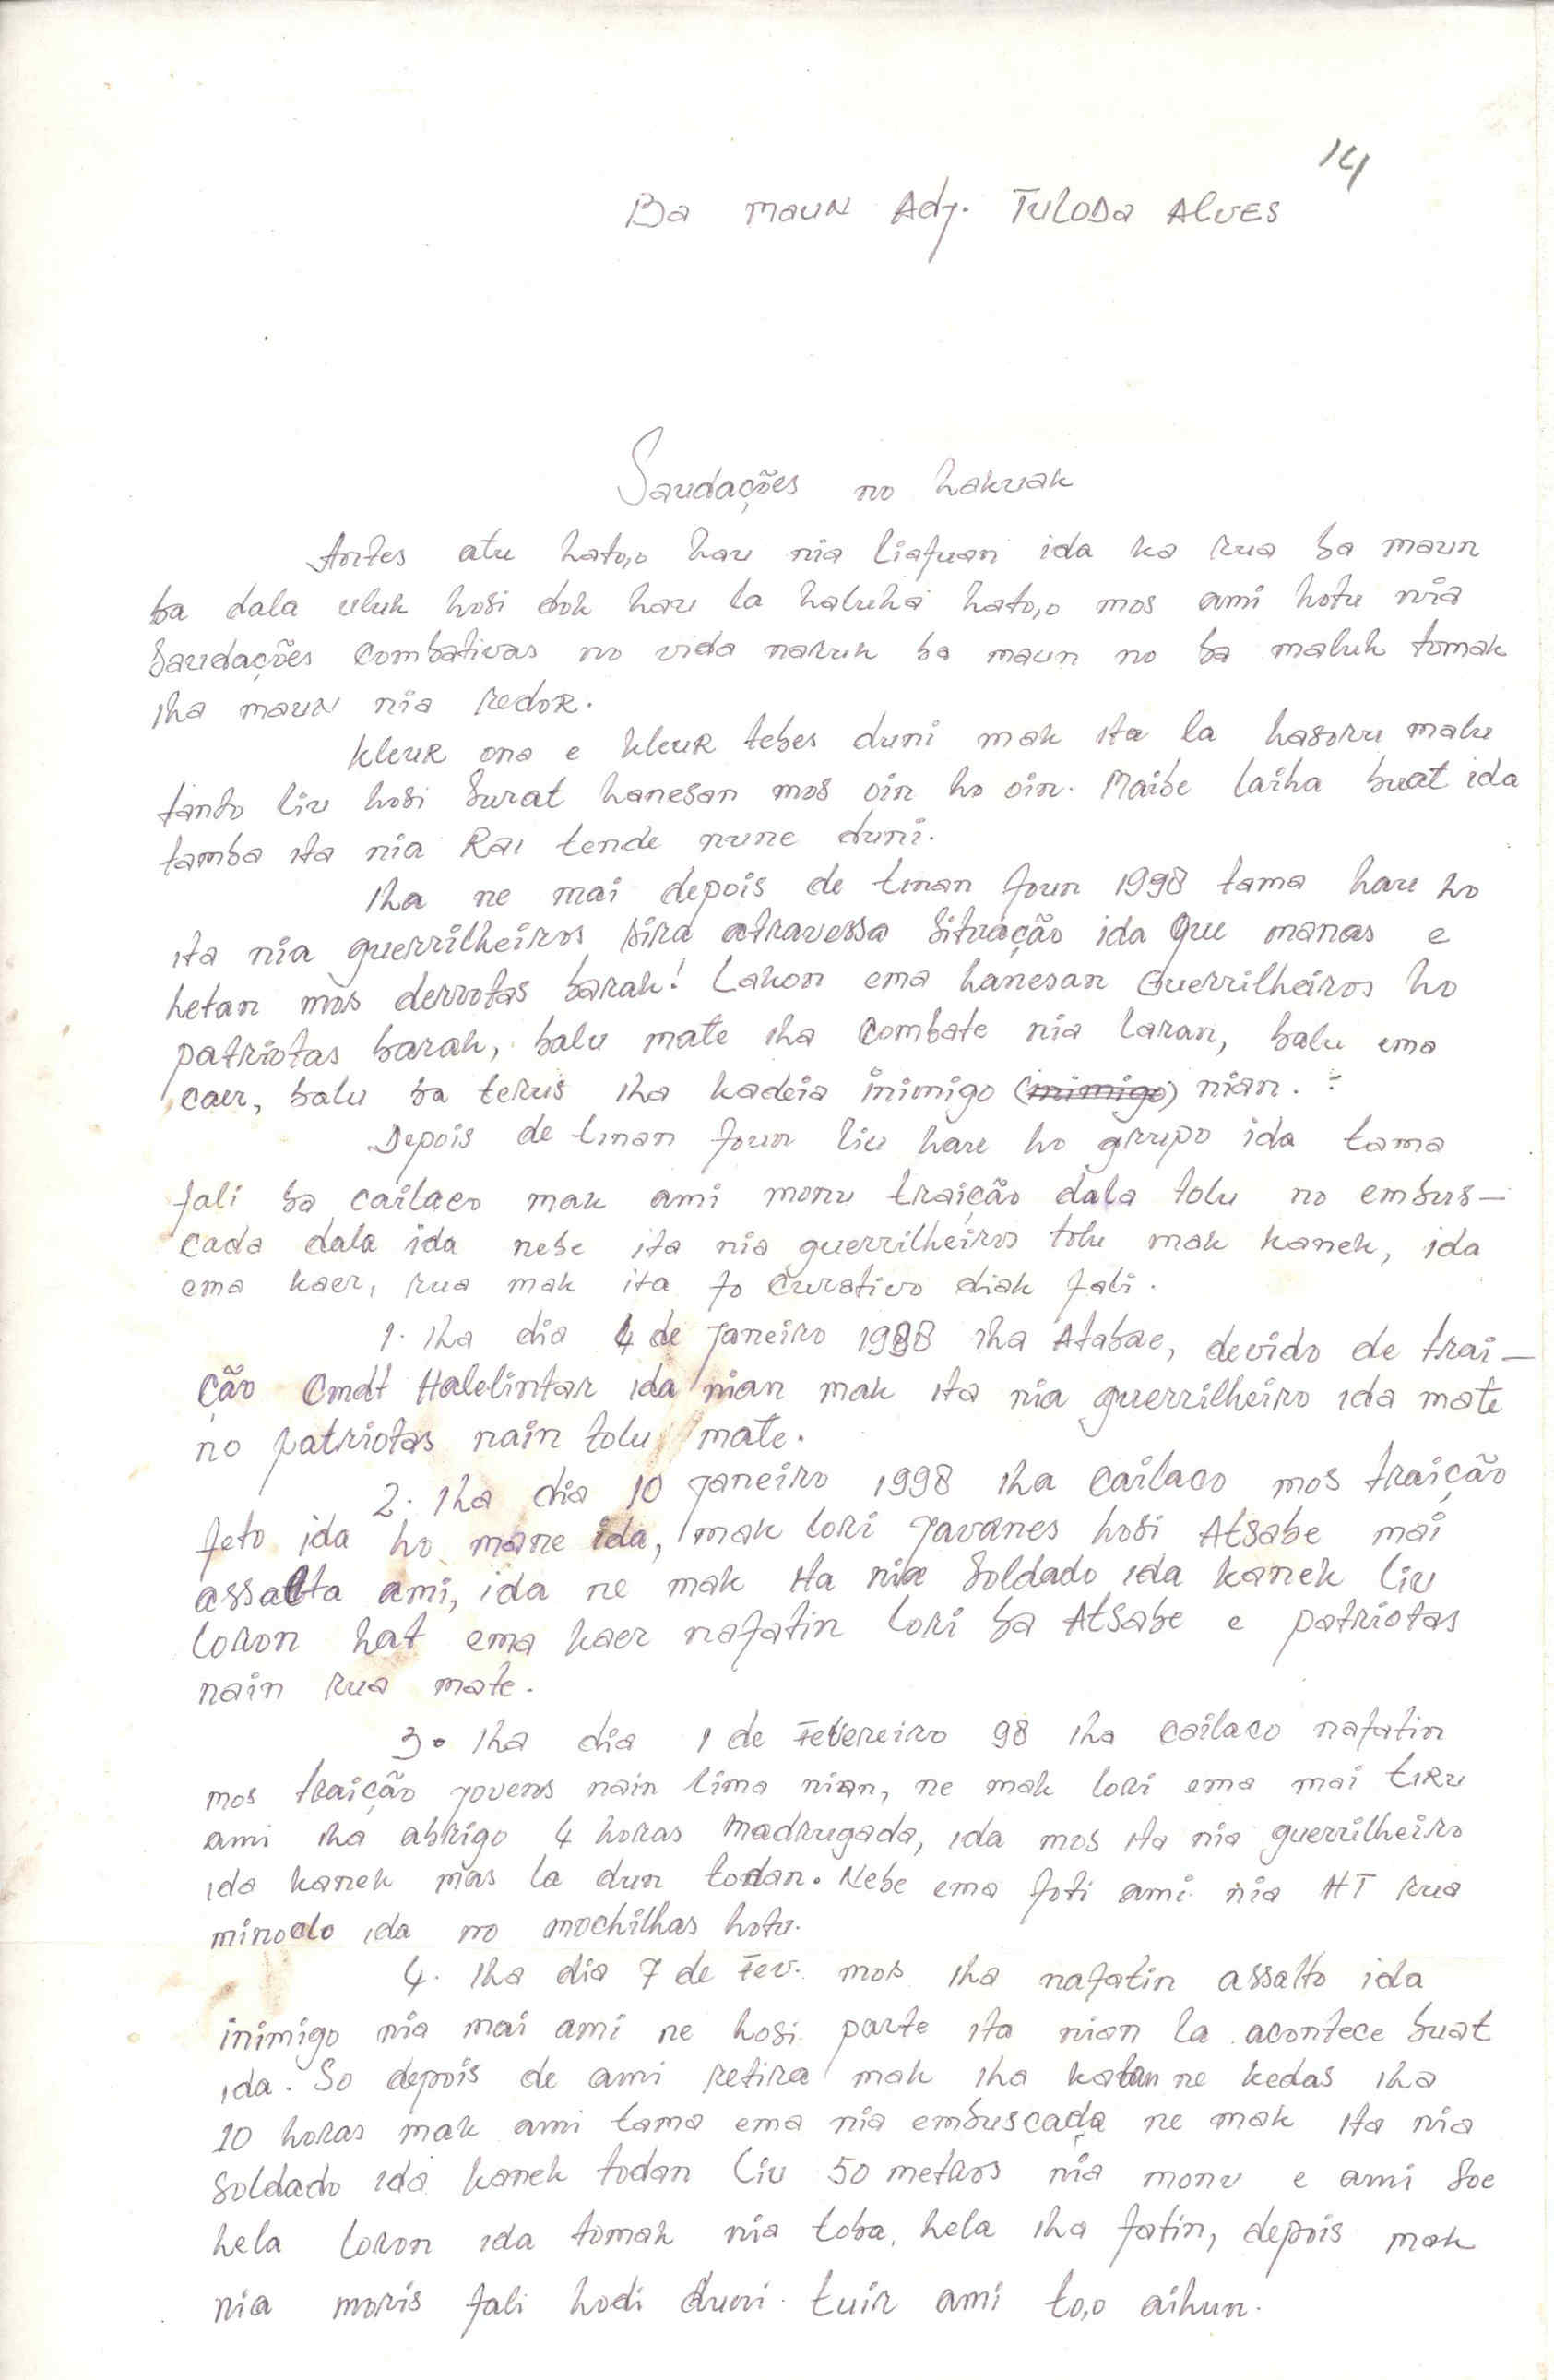 14
Ba maun Adj. Tuloda Alves
Saudações no hakuak
Antes atu hato,o hau nia liafuan ida ka rua ba maun
ba dala uluk hosi dok hau la haluha hato,o mos ami hotu nia
Saudações combativas no vida naruk ba maun no ba maluk tomak
iha maun nia redor.
Kleur ona e kleur tebes duni mak ita la hasoru malu
tanto liu hosi Surat hanesan mos oin ho oin. Maibe laiha buat ida
tamba ita nia Rai tende nune duni.
Iha ne mai depois de tinan foun 1998 tama hau ho
ita nia guerrilheiros sira atravessa Situação ida que manas e
hetan mos derrotas barak! Lakon ema hanesan Guerrilheiros ho
patriotas barak, balu mate iha Combate nia laran, balu ema
caer, balu ba terus iha kadeia inimigo (inimigo) nian.
Depois de tinan foun liu hau ho grupo ida tama
fali ba Cailaco mak ami monu traição dala tolu no embus-
cada dala ida nebe ita nia guerrilheiros tolu mak kanek, ida
ema kaer, rua mak ita fo Curativo diak fali.
1. Iha dia 4 de Janeiro 1998 iha Atabae, devido de trai-
ção Cmdt Halelintar ida nian mak ita nia guerrilheiro ida mate
no patriotas nain tolu mate.
2. Iha dia 10 Janeiro 1998 iha Cailaco mos traição
feto ida ho mane ida, mak lori Javanes hosi Atsabe mai
assalta ami, ida ne mak ita nia Soldado ida kanek liu
loron hat ema kaer nafatin lori ba Atsabe e patriotas
nain rua mate.
3. Iha dia 1 de Fevereiro 98 iha Cailaco nafatin
mos traição jovens nain lima nian, ne mak lori ema mai tiru
ami iha abrigo 4 horas Madrugada, ida mos ita nia guerrilheiro
ida kanek mas la dun todan. Nebe ema foti ami nia HT rua
minoclo ida no mochilhas hotu.
4. Iha dia 7 de Fev. mos iha nafatin assalto ida
inimigo nia mai ami ne hosi parte ita nian la acontece buat
ida. So depois de ami retira mak iha ne kedas iha
10 horas mak ami tama ema nia embuscada ne mak ita nia
Soldado ida kanek todan liu 50 metros nia monu e ami Soe
hela loron ida tomak nia toba hela iha fatin, depois mak
nia moris fali hodi duni tuir ami to,o aihun.